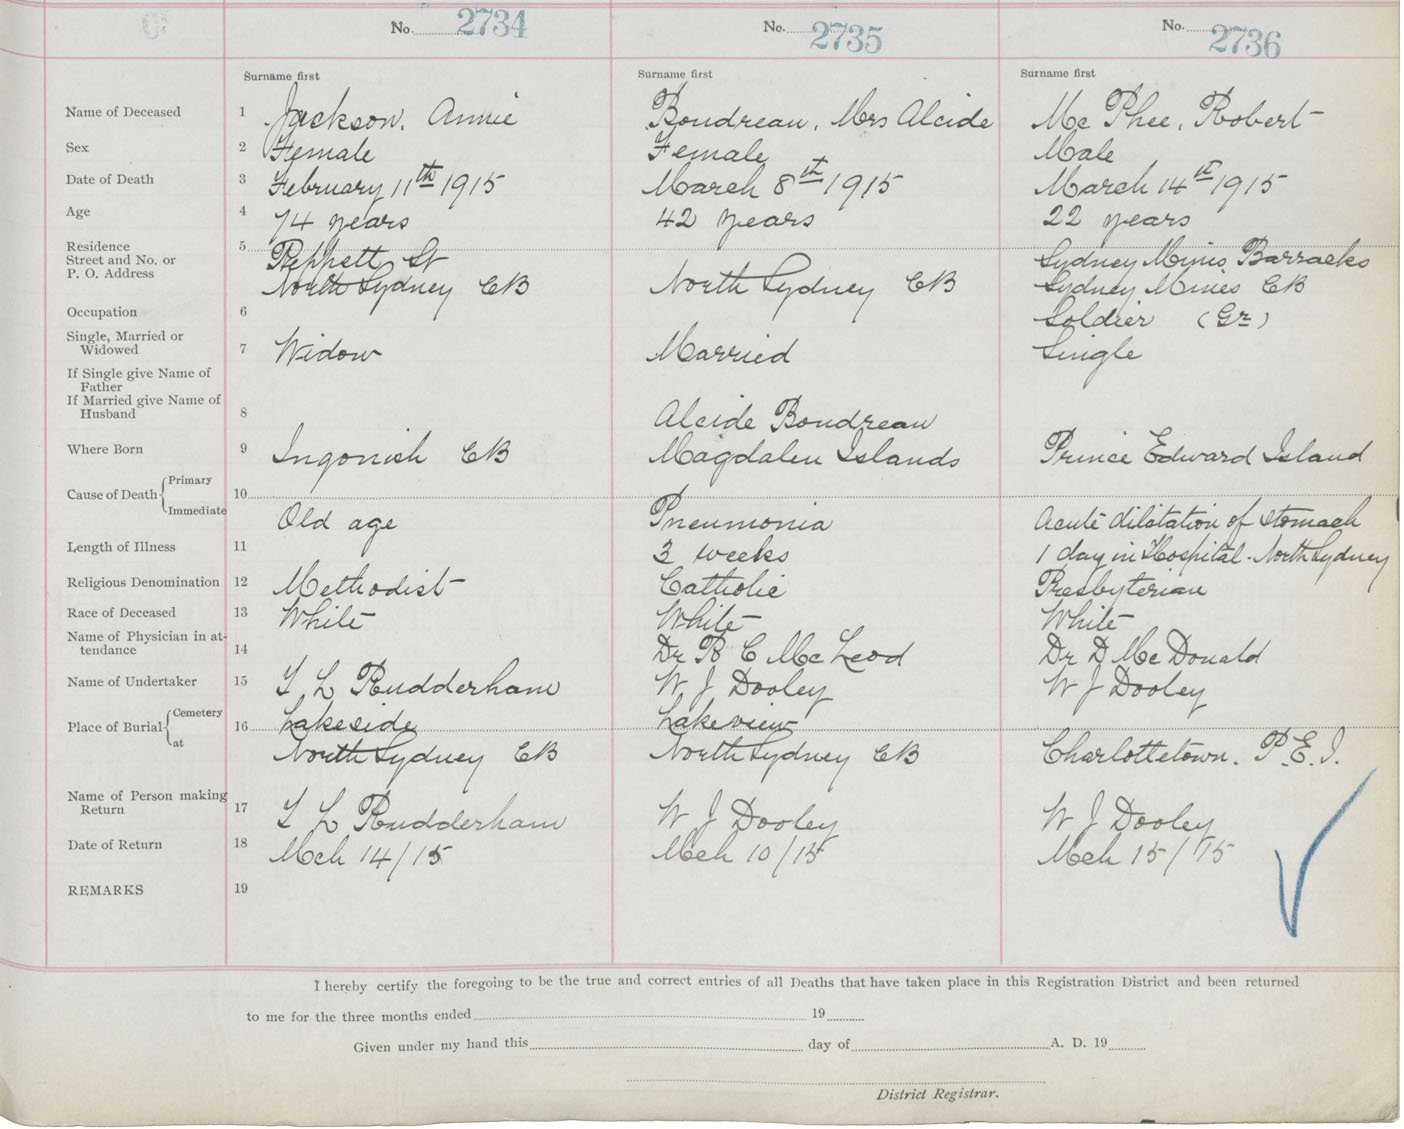 No. 2734
No. 2735
No. 2736
Surname first
Surname first
Surname first
Name of Deceased 1 Jackson, Annie
Boudreau, Mrs Alcide
Mc Phee, Robert
Sex 2 Female
Female
Male
Date of Death 3 February 11th 1915
March 8th 1915
March 14th 1915
Age 4 74 years
42 years
22 years
Residence 5
Street and No. or
P. O. Address
St
North Sydney CB
North Sydney CB
Sydney Mines Barracks
Sydney Mines CB
Occupation 6
Soldier (Gr)
Single, Married or
Widowed 7 Widow
Married
Single
If Single give Name of
Father
If Married give Name of
Husband 8
Alcide Boudreau
Where Born 9 Ingonish CB
Magdalen Islands
Prince Edward Island
Cause of Death Primary 10
Immediate
Old age
Pneumonia
Acute dilatation of stomach
Length of Illness 11
3 weeks
1 day in Hospital - North Sydney
Religious Denomination 12 Methodist
Catholic
Presbyterian
Race of Deceased 13 White
White
White
Name of Physician in at-
tendance 14
Dr R C McLeod
Dr D McDonald
Name of Undertaker 15 L Rudderham
W J Dooley
W J Dooley
Place of Burial Cemetery 16 Lakeside
Lakeview
at
North Sydney CB
North Sydney CB
Charlottetown. P.E.I.
Name of Person making
Return 17 L Rudderham
W J Dooley
W J Dooley
Date of Return 18 Mch 14/15
Mch 10/15
Mch 15/15
REMARKS 19
I hereby certify the foregoing to be the true and correct entries of all Deaths that have taken place in this Registration District and been returned
to me for the three months ended 19
Given under my hand this day of A. D. 19
District Registrar.